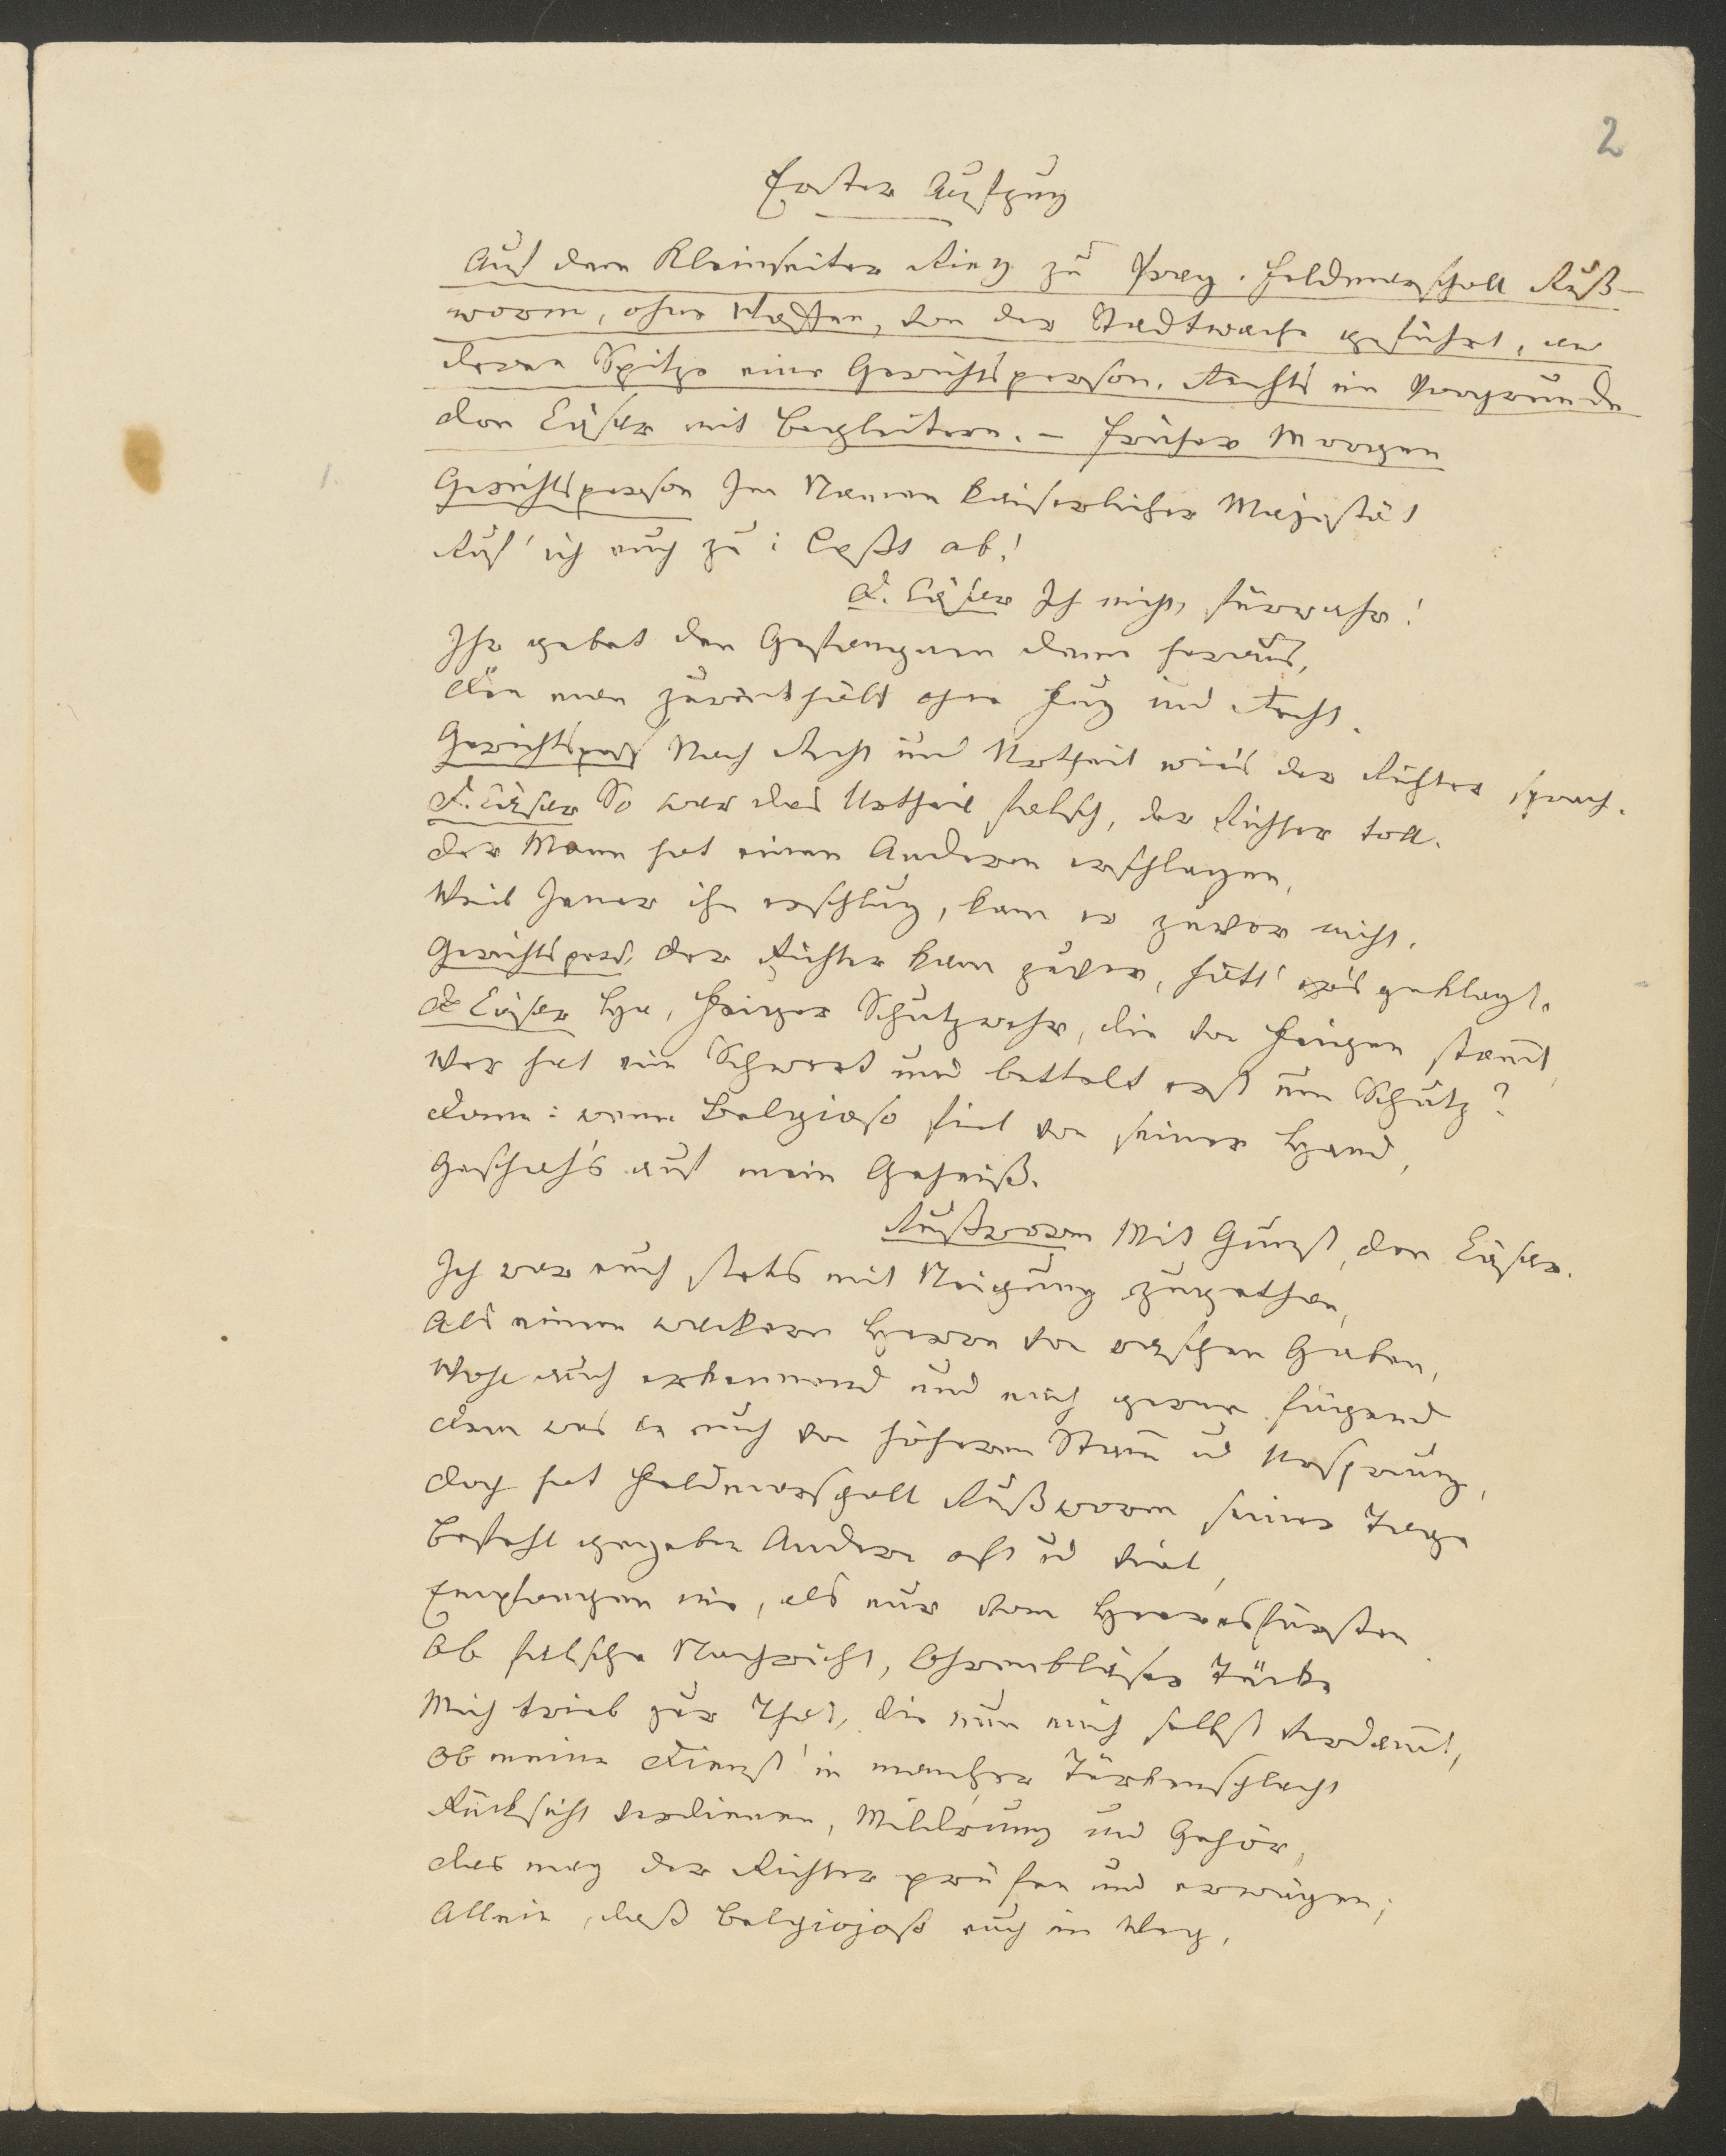 2
Erster Aufzug
Auf dem Kleinseiter Ring zu Prag. Feldmarschall Ruß-
worm, ohne Waffen, von der Stadtwache geführt, an
deren Spitze eine Gerichtsperson. Rechts im Vorgrunde
Don Cäsar mit Begleitern. – Früher Morgen
Gerichtsperson Im Namen kaiserlicher Majestät
Ruf' ich euch zu: Laßt ab!
D. Cäsar Ich nicht, fürwahr!
Ihr gebet den Gefangnen denn heraus,
Den man zurückhält ohne Fug und Recht.
Gerichtspers Nach Recht und Urtheil wie's der Richter sprach.
D. Cäsar So war das Urtheil falsch, der Richter toll.
Der Mann hat einen Anderen erschlagen,
Weil Jener ihn erschlug, kam er zuvor nicht.
Gerichtspers, Der Richter kam zuvor, hätt' er's geklagt.
D Cäsar He, Feiger Schutzwehr, die von Feigen stam̄t,
Wer hat ein Schwert und bettelt erst um Schutz?
Dann: wenn Belgioso fiel von seiner Hand,
Geschah's auf mein Geheiß.
Rußworm Mit Gunst, Don Cäsar.
Ich war euch stets mit Neigung zugethan,
Als einem wackern Herrn von raschen Gaben,
Wohl auch erkennend und mich gerne fügend
Dem was an euch von höherm Stam̄ ūd Ursprung,
Doch hat Feldmarschall Rußworm seiner Tage
Befehl gegeben Andern oft ūd viel,
Empfangen nie, als nur vom Heeresfürsten
Ob falsche Nachricht, Ohrenbläser Tücke
Mich trieb zur That, die nun mich selbst verdam̄t,
Ob meine Dienst' in mancher Türkenschlacht
Rücksicht verdienen, Mildrung und Gehör,
Das mag der Richter prüfen und erwägen;
Allein, daß Belgiojoso euch im Weg,